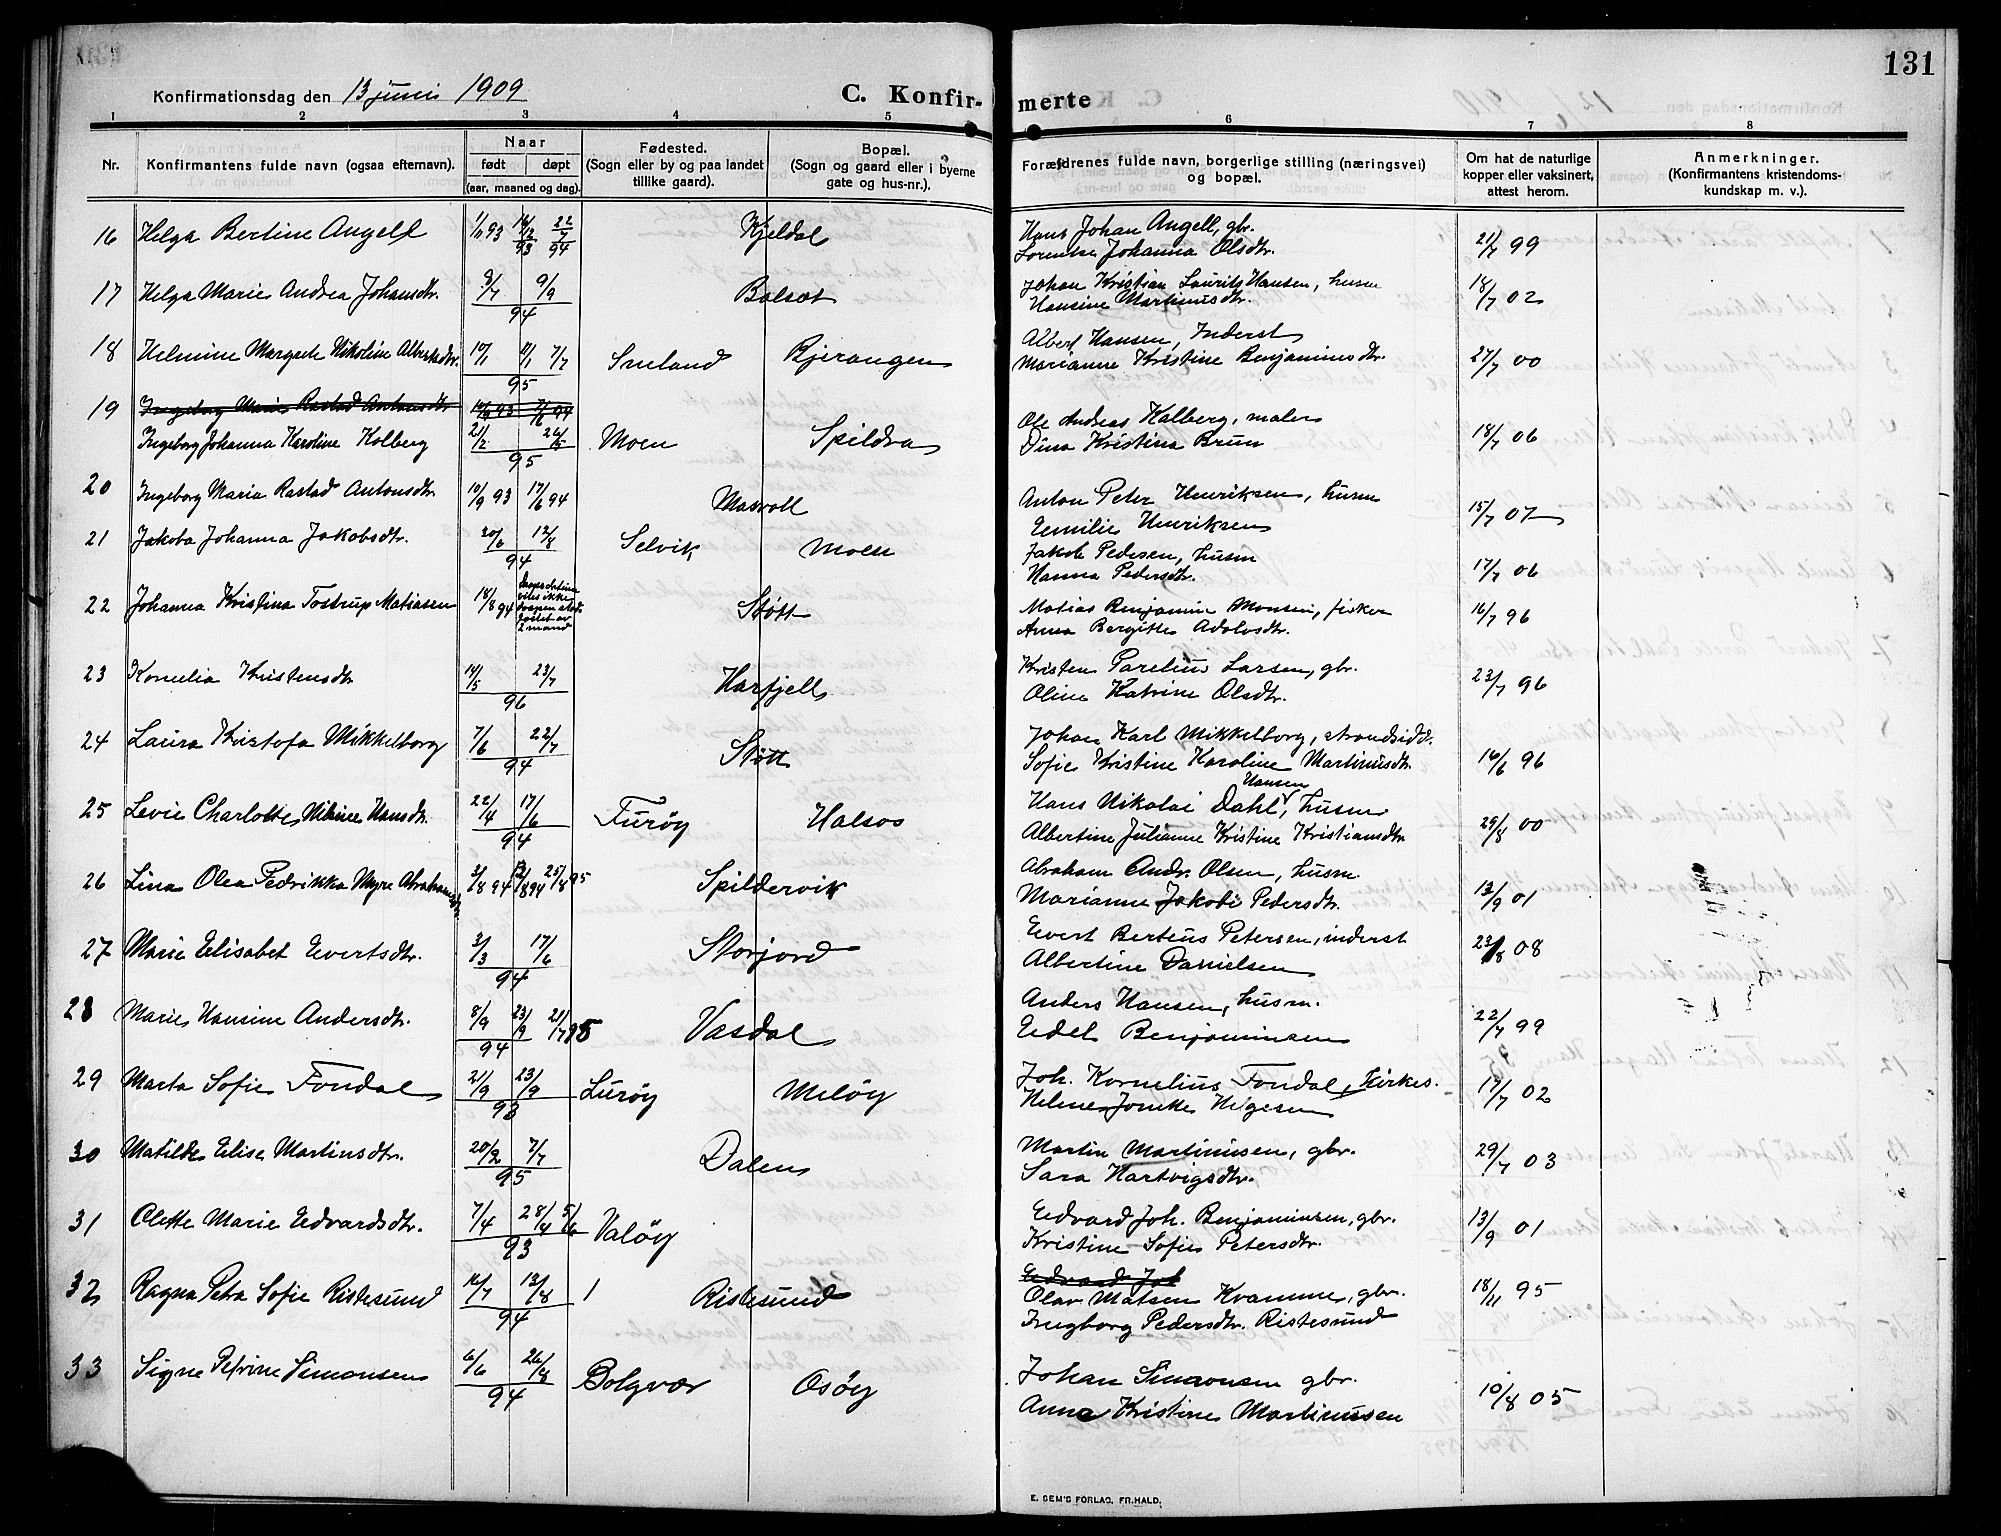 131
Konfirmationsdag den 13 juni 1909
C. Konfirmerte
1 2 3 4 5 6 7 8
Nr. Konfirmantens fulde navn (ogsaa efternavn). Naar født døpt (aar, maaned og dag). Fødested. (Sogn eller by og paa landet tillike gaard). Bopæl. (Sogn og gaard eller i byerne gate og hus-nr.). Forældrenes fulde navn, borgerlige stilling (næringsvei) og bopæl. Om hat de naturlige kopper eller vaksinert, attest herom. Anmerkninger. (Konfirmantens kristendomskundskap m. v.).
16 Helga Bertine Angell 1/11 93 16/12 93 22/7 94 Kjeldal Hans Johan Angell, gbr. 21/7 99
Lorentse Johanna Olsdtr.
17 Helga Marie Andrea Johansdtr. 8/7 9/9 94 Bolsøt Johan Kristian Laurits Hansen, husm 18/7 02
Hansine Martinusdtr.
18 Helmine Margrete Nikoline Albertsdtr. 10/1 11/1 7/7 95 Smeland Bjerangen Albert Hansen, Inderst 27/7 00
Marianne Kristine Benjaminsdtr.
19 Ingeborg Marie Rastad Antonsdtr
Ingeborg Johanna Karoline Kolberg 21/2 26/5 95 Moen Spildra Ole Andreas Kalberg, maler 18/7 06
Dina Kristina Brun
20 Ingeborg Maria Rastad Antonsdtr. 10/9 93 17/6 94 Masvoll Anton Peter Henriksen, husm 15/7 07
Emilie Henriksen
21 Jakoba Johanna Jakobsdtr. 20/6 12/8 94 Selvik Moen Jakob Pedersen, husm 17/7 06
Hanna Pedersdtr.
22 Johanna Kristina Tostrup Matiasen 18/8 94 Støtt Matias Benjamin Monsen, fisker 16/7 96
Anna Bergitte Adolvsdtr.
23 Kornelia Kristensdtr 14/5 23/7 96 Harfjell Kristen Parelius Larsen, gbr. 23/7 96
Oline Katrine Olsdtr.
24 Laura Kristofa Mikkelborg 7/6 22/7 94 Støtt Johan Karl Mikkelborg, strandsidd. 16/6 96
Sofie Kristine Karoline Martinusdtr.
25 Levie Charlotte Hansdtr. 22/4 17/6 94 Furøy Halsos Hans Nikolai Dahl Hansen, husm 29/8 00
Albertine Julianne Kristine Kristiansdtr
26 Lina Olea Fedrikka Myre Abrahamsdtr 3/8 94 12/8 94 25/8 95 Spildervik Abraham Andr. Olsen, husm. 13/9 01
Marianne Jakobi Pedersdtr.
27 Marie Elisabet Evertsdtr. 3/3 17/6 94 Storjord Evert Berteus Petersen, inderst 23/8 08
Albertine Danielsen
28 Marie Hansine Andersdtr. 8/9 23/9 94 21/7 95 Vasdal Anders Hansen, husm. 22/7 99
Edel Benjaminsen
29 Marta Sofie Fondal 21/9 23/9 93 Lurøy Meløy Joh. Kornelius Fondal, kirkes. 17/7 02
Helene Jonette Helgesen
30 Matilde Elise Martinsdtr. 20/2 7/7 95 Dalen Martin Martinussen, gbr. 29/7 03
Sara Hartvigsdtr.
31 Olette Marie Edvardsdtr. 7/4 28/4 5/6 93 Valøy Edvard Joh. Benjaminsen, gbr. 13/9 01
Kristine Sofie Petersdtr.
32 Ragna Petra Sofie Ristesund 14/7 12/8 94 Ristesund Edvard Joh
Olav Matsen Kvamme, gbr. 18/11 95
Ingborg Pedersdtr. Ristesund
33 Signe Petrine Simonsen 6/6 26/8 94 Bolgvær Osøy Johan Simonsen gbr. 10/8 05
Anna Kristine Martinussen
E. SEM'S FORLAG, FR.HALD.